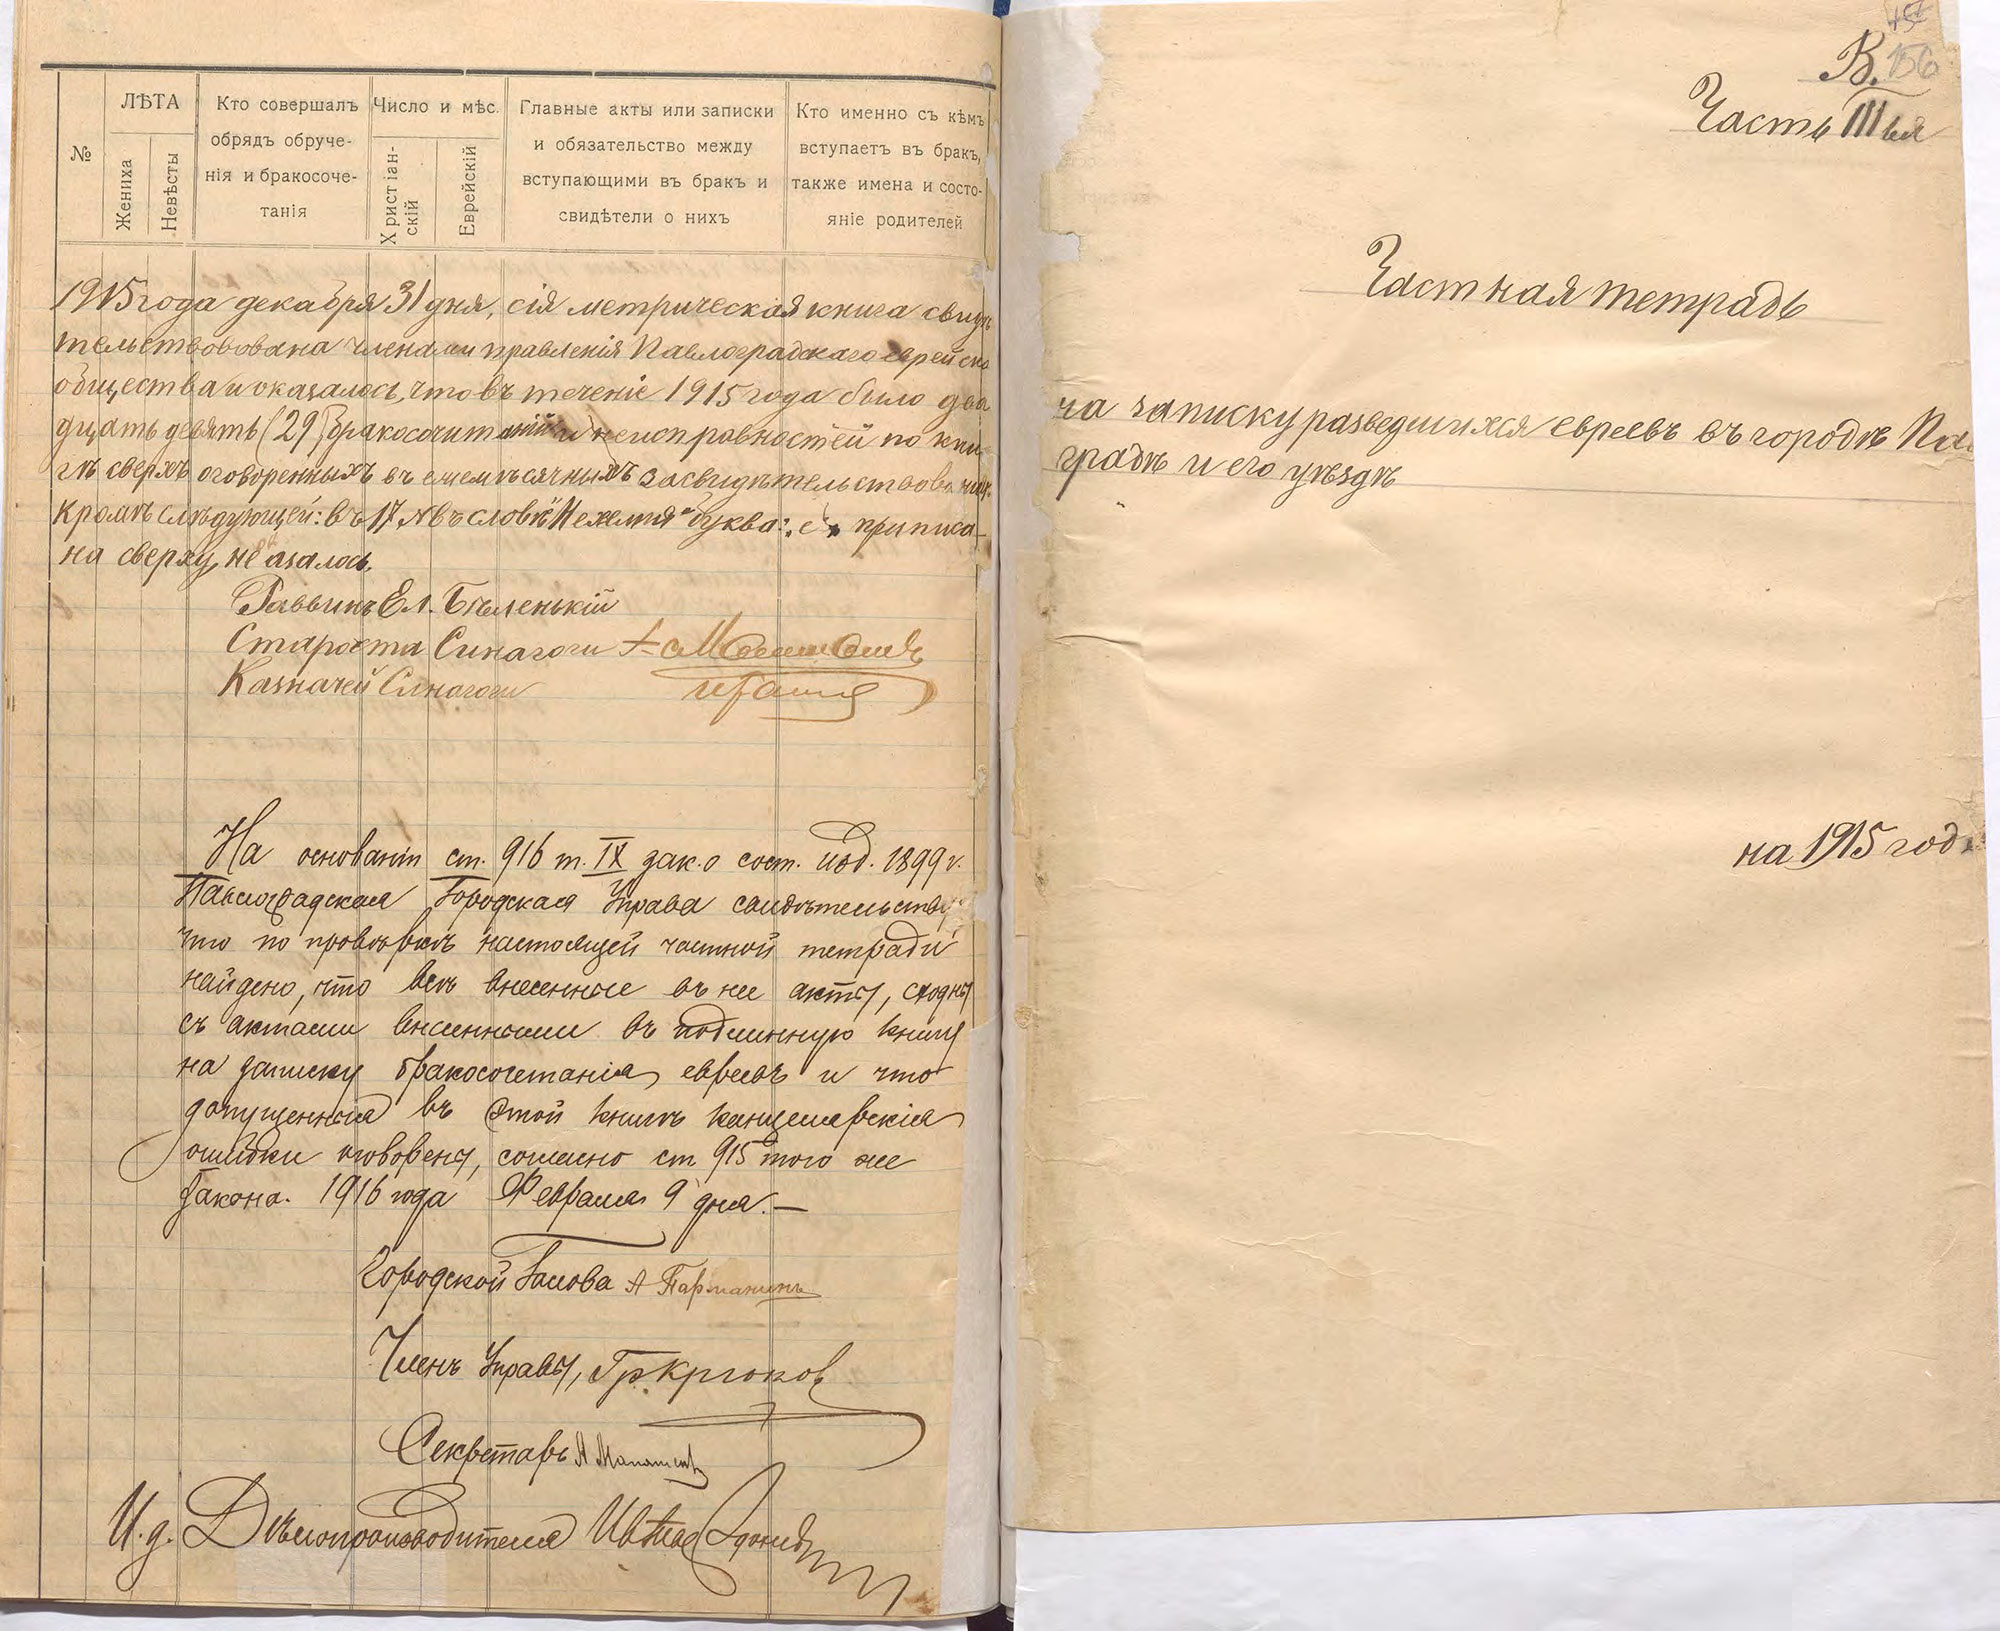 №
ЛѢТА
Жениха
Невѣсты
Кто совершалъ
обрядъ обруче-
нія и бракосоче-
танія
Число и мѣс.
Христіан-
скій
Еврейскій
Главные акты или записки
и обязательство между
вступающими въ бракъ и
свидѣтели о нихъ
Кто именно съ кѣмъ
вступаетъ въ бракъ,
также имена и состо-
яніе родителей
1915 года декабря 31 дня, сія метрическая книга свидѣ
тельствована членами правленія Павлоградскаго еврейска
общества и оказалось, что въ теченіе 1915 года было два
дцать девять (29) бракосочитаній и неисправностей по кни-
гѣ сверхъ оговоренныхъ въ ежемѣсячныхъ засвидѣтельствован
кромѣ слѣдующей: въ 17 № въ словѣ буква: „е“ приписа-
на сверху, не оказалось.
Раввинъ Ел. Бѣленькій
Староста Синагоги
Казначей Синагоги
На основаніи ст. 916 т. IX зак. о сост. изд. 1899 г.
Павлоградская Городская Управа свидѣтельству
что по провѣркѣ настоящей частной тетради
найдено, что всѣ внесенные въ нее акты, сходны
съ актами внесенными въ подлинную книгу
на записку бракосочетанія евреевъ и что
допущенныя въ этой книгѣ канцелярскія
ошибки оговорены, согласно ст. 915 того же
закона. 1916 года Февраля 9 дня. —
Городской Голова А Парманинъ
Членъ Управы, Гр. Крюков
Секретарь А
И. д. Дѣлопроизводителя
156
В.
Часть III ья
Частная тетрадь
на записку разведшихся евреевъ въ городѣ Па
градѣ и его уѣздѣ
на 1915 годъ